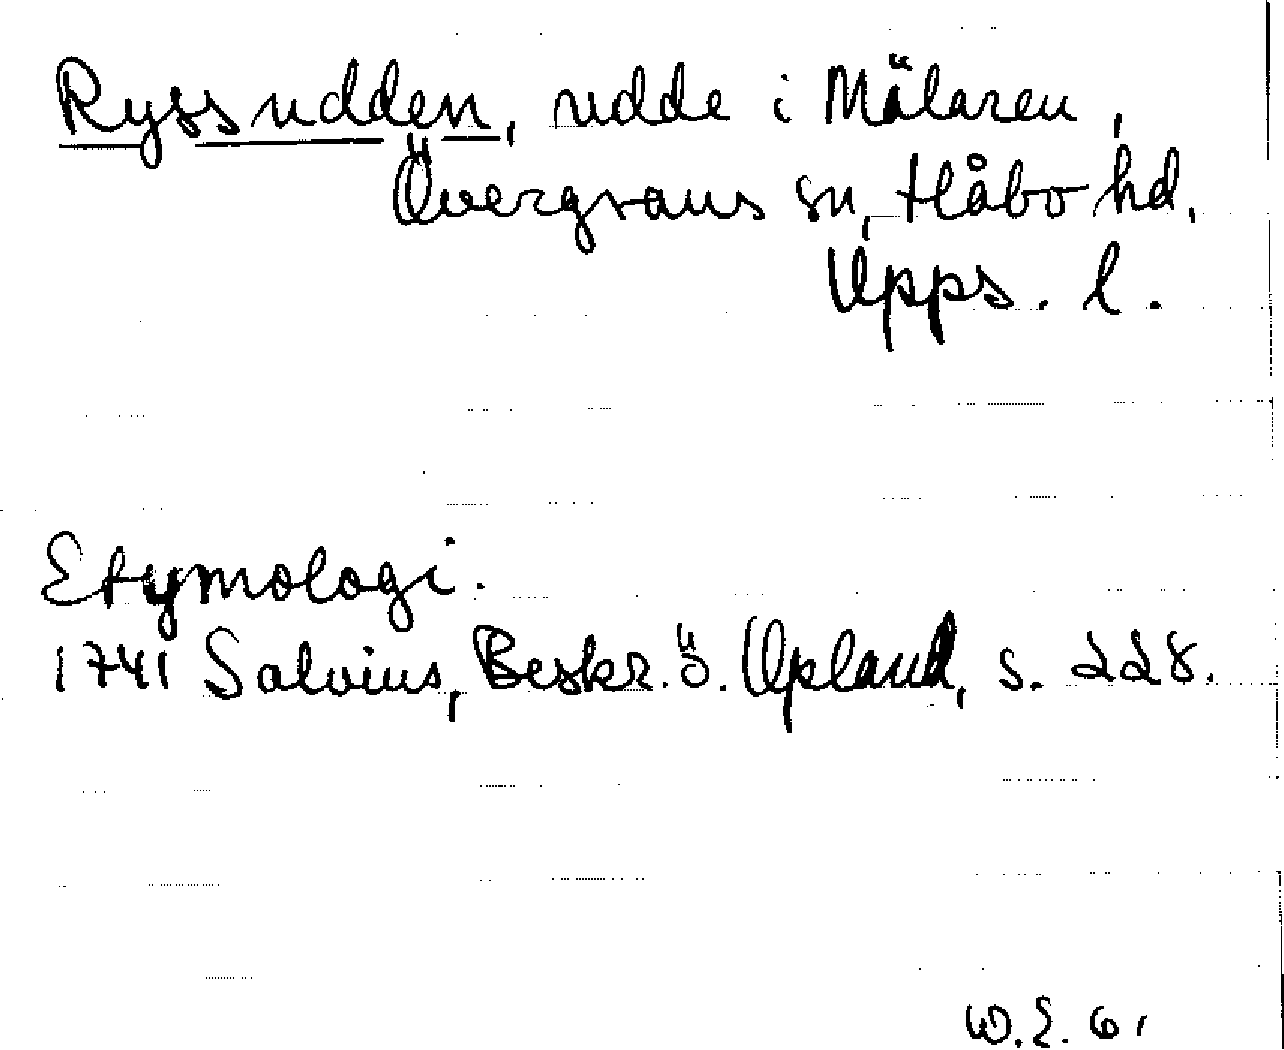 Ryssudden, udde i Mälaren,
Övergrans sn, Håbo hd,
Upps. l.
Etymologi.
1741 Salvius, Beskr. ö. Upland, s. 228.
W.E. 61